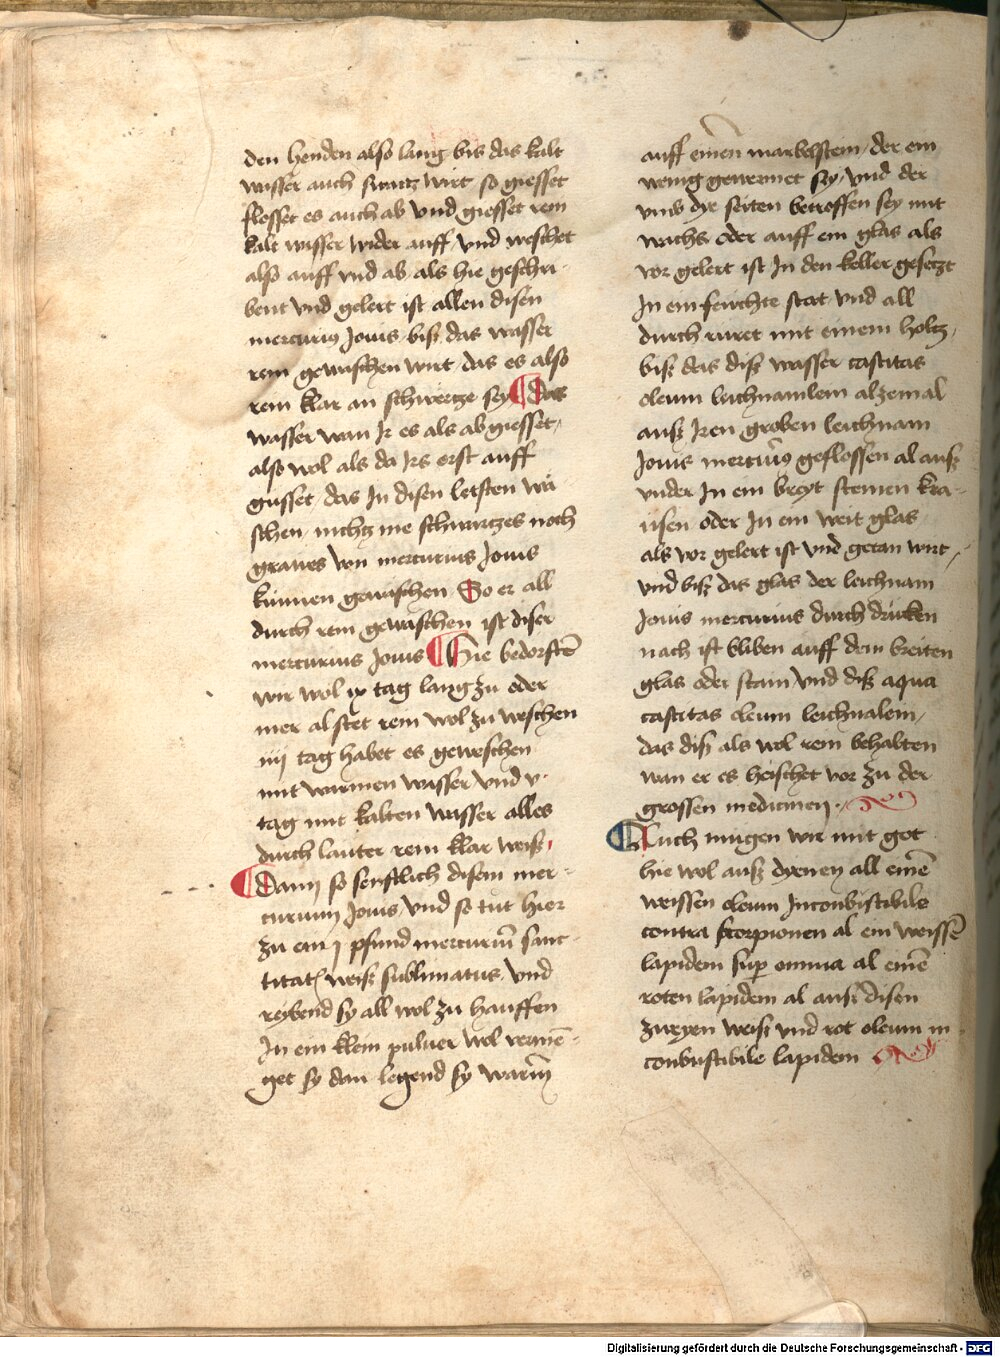 den henden also lang bis das kalt
wasser auch swartz wirt so giesset
flosset es auch ab vnd giesset rein
kalt wasser wider auff vnd weschet
also auff vnd ab als hie geschri-
bent vnd gelert ist allen disen
mercurius Jouis biß das wasser
rein gewaschen wirt das es also
rein klar an schwertze sey ¶ Das
wasser wan Ir es als ab giesset,
also wol als da Irs erst auff
gusset, das In disen letsten wa-
schen nichtz me schwartzes noch
graues von mercurius Jouis
kunnen gewaschen So er all
durch rein gewaschen ist diser
mercurius Jouis ¶ Hie bedorftē
wir wol ix tag lang zu oder
mer al stet rein wol zu weschen
iiij tag habet es geweschen
mit warmen wasser vnd v.
tag mit kalten wasser alles
durch lauter rein klar weiß
¶ Dann so senftlich disem mer-
curium Jouis, vnd so tut hier
zu ein j pfund mercuriū sanc-
titatis weiß sublimatus, vnd
reybend sy all wol zu hauffen
In ein klein puluer wol vermē-
get sy dan legend sy warm
auff einen marbelstein, der ein
wenig gewermet sey, vnd der
vmb dye seiten betroffen sey mit
wachs oder auff ein glas als
vor gelert ist In den keller gesetzt
In ein feuchte stat vnd all
durch ruret mit einem holtz,
biß das diß wasser castitas
oleum leichnamlem alzemal
auß Iren groben leichnam
Jouis mercurius geflossen al auß
vnder In ein breyt steinen kra-
usen oder In ein weit glas
als vor gelert ist vnd getan wirt,
vnd biß das glas der leichnam
Jouis mercurius durch drucken
nach ist bliben auff dem breiten
glas oder stain vnd diß aqua
castitas oleum leichnalem,
das diß als wol rein behalten
wan er es heischet vor zu der
grossen medicinen.
¶ Auch mugen wir mit got
hie wol auß dyenen all einē
weissen oleum Inconbustibile
contra scorpionen al ein weissē
lapidem super omnia al einē
roten lapidem al auß disen
zweyen weiß vnd rot oleum in
conbustibile lapidem
Digitalisierung gefördert durch die Deutsche Forschungsgemeinschaft - DFG